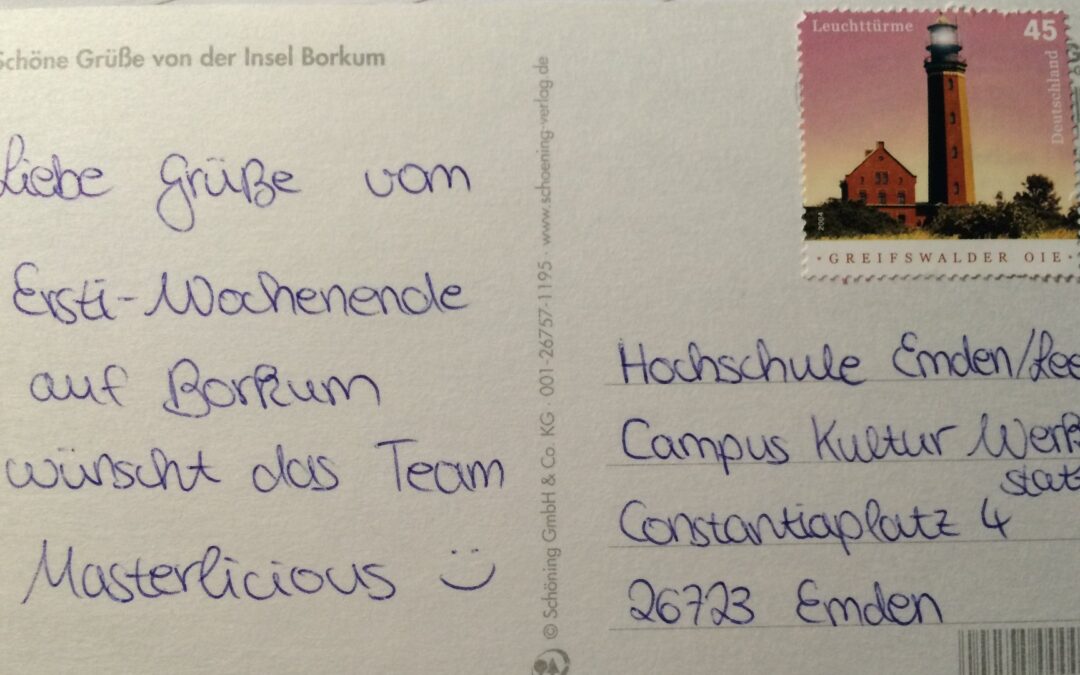 Schöne Grüße von der Insel Borkum
Liebe Grüße vom
Ersti-Wochenende
auf Borkum
wünscht das Team
Masterlicious
© Schöning GmbH & Co. KG · 001-26757-1195 · www.schoening-verlag.de
Leuchttürme 45
Deutschland
2004
· GREIFSWALDER OIE ·
Hochschule Emden/Lee
Campus Kultur Werk
stat
Constantiaplatz 4
26723 Emden